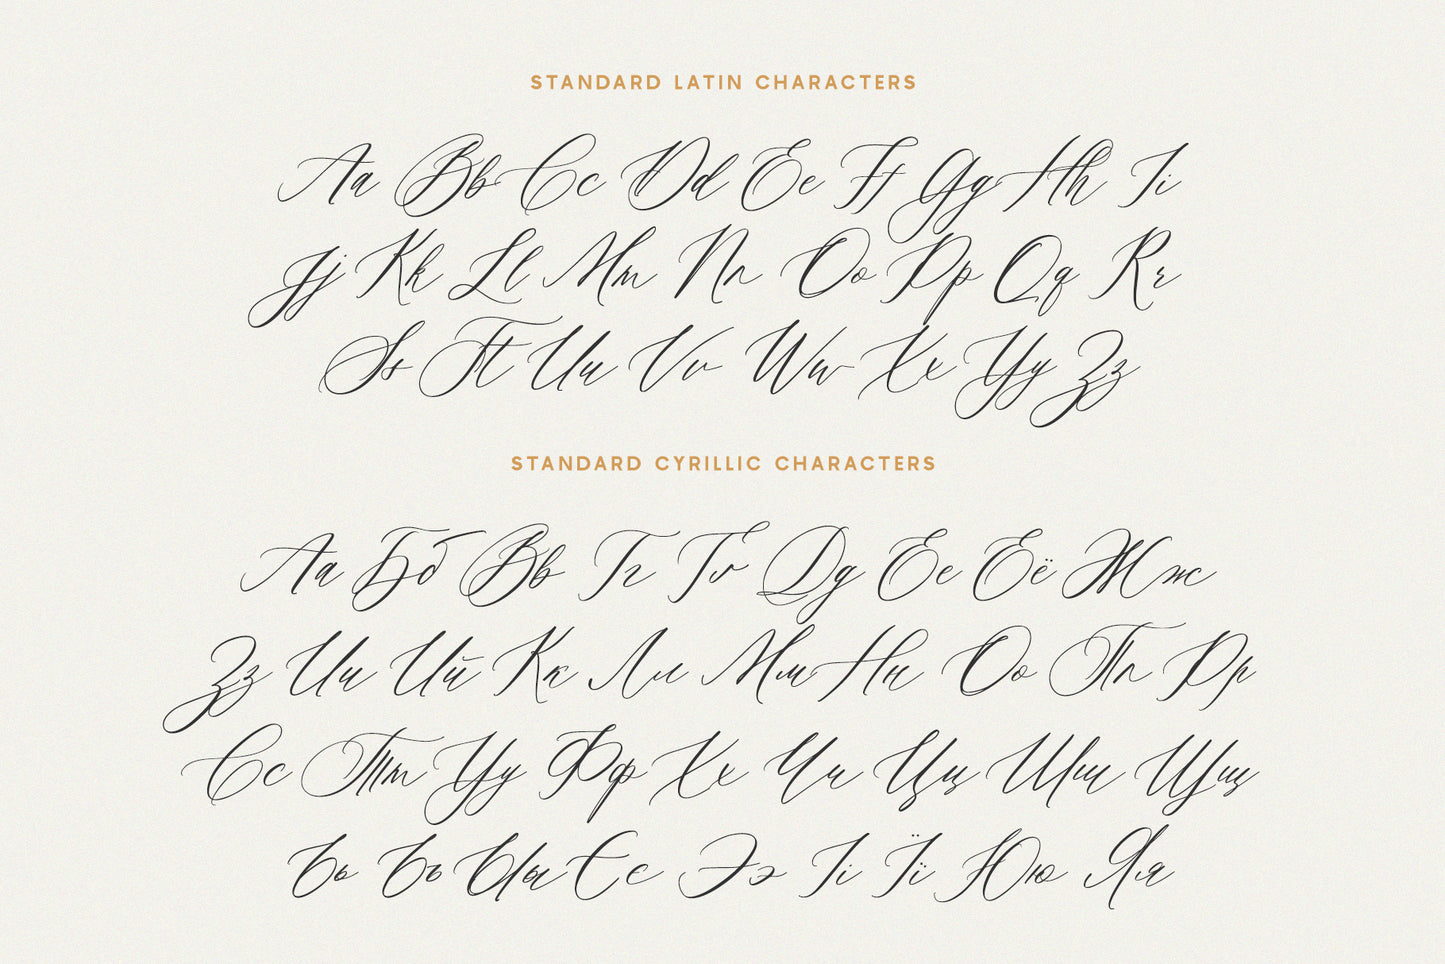 STANDARD LATIN CHARACTERS
Aa Bb Cc Dd Ee Ff Gg Hh Ii
Jj Kk Ll Mm Nn Oo Pp Qq Rr
Ss Tt Uu Vv Ww Xx Yy Zz
STANDARD CYRILLIC CHARACTERS
Аа Бб Вв Гг Ґґ Дд Ее Ёё Жж
Зз Ии Йй Кк Лл Мм Нн Оо Пп Рр
Сс Тт Уу Фф Хх Чч Цц Шш Щщ
Ьь Ъъ Ыы Єє Ээ Іі Її Юю Яя